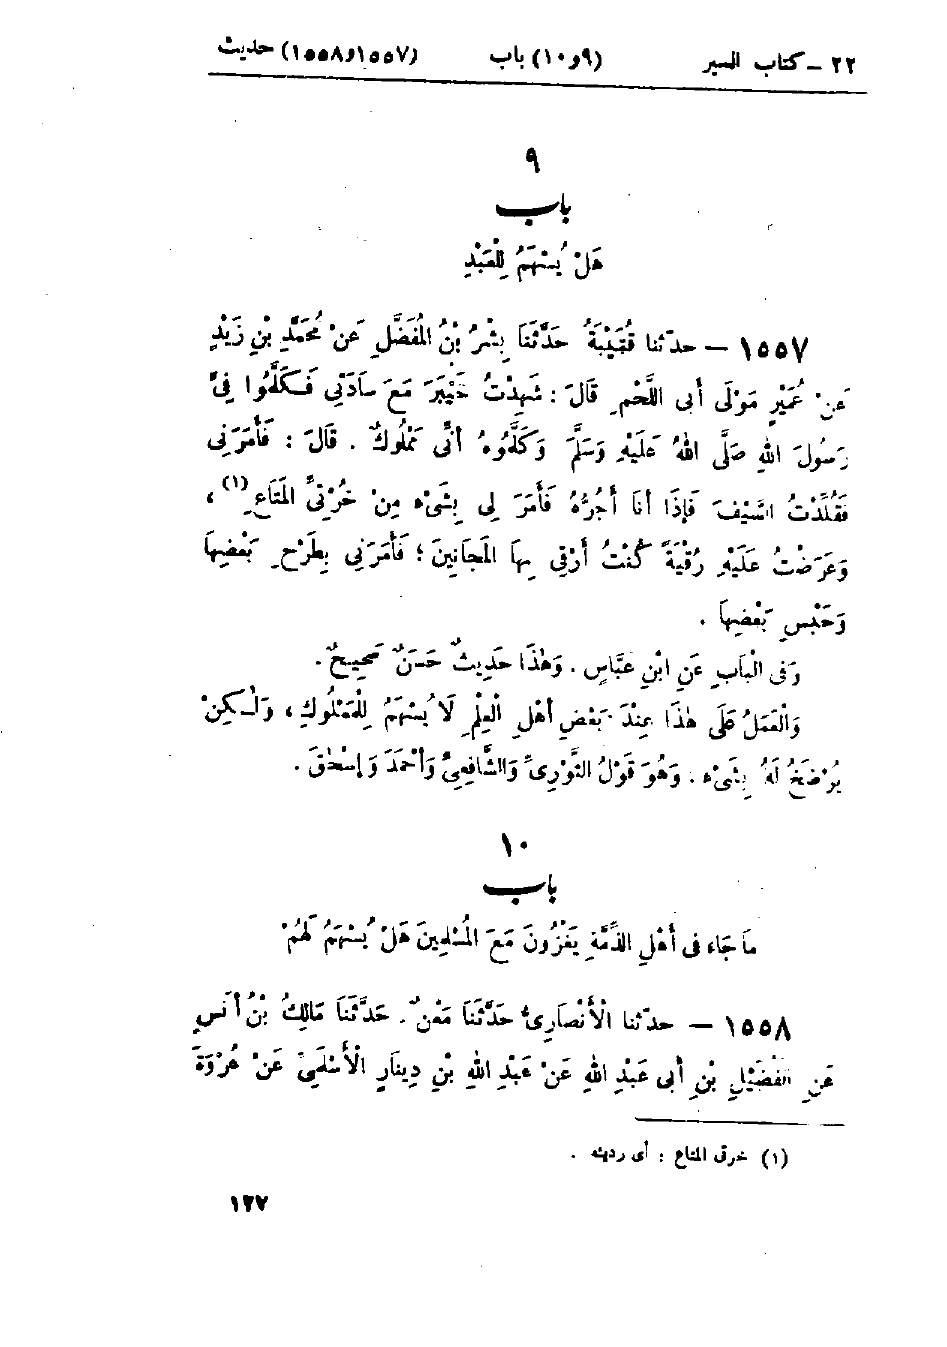 ٢٢ – كتاب السير (٩و١٠) باب (١٥٥٧و١٥٥٨) حديث
٩
باب
هَلْ يُسْهَمُ لِلْعَبْدِ
١٥٥٧ – حدّثنا قُتَيْبَةُ حَدَّثَنَا بِشْرُ بْنُ الْمُفَضَّلِ عَنْ مُحَمَّدِ بْنِ زَيْدٍ
عَنْ عُمَيْرٍ مَوْلَى أَبِى اللَّحْمِ قَالَ : شَهِدْتُ خَيْبَرَ مَعَ سَادَتِى فَكَلَّمُوا فِىَّ
رَسُولَ اللهِ صَلَّى اللهُ عَلَيْهِ وَسَلَّمَ وَكَلَّمُوهُ أَنِّى مَمْلُوكٌ . قَالَ : فَأَمَرَنِى
فَقُلِّدْتُ السَّيْفَ فَإِذَا أَنَا أَجُرُّهُ فَأَمَرَ لِى بِشَىْءٍ مِنْ خُرْثِىِّ الْمَتَاعِ(١) ،
وَعَرَضْتُ عَلَيْهِ رُقْيَةً كُنْتُ أَرْقِى بِهَا الْمَجَانِينَ ؛ فَأَمَرَنِى بِطَرْحِ بَعْضِهَا
وَحَبْسِ بَعْضِهَا .
وَفِى الْبَابِ عَنِ ابْنِ عَبَّاسٍ . وَهٰذَا حَدِيثٌ حَسَنٌ صَحِيحٌ .
وَالْعَمَلُ عَلَى هٰذَا عِنْدَ بَعْضِ أَهْلِ الْعِلْمِ لَا يُسْهَمُ لِلْمَمْلُوكِ ، وَلٰكِنْ
يُرْضَخُ لَهُ بِشَىْءٍ . وَهُوَ قَوْلُ الثَّوْرِىِّ وَالشَّافِعِىِّ وَأَحْمَدَ وَإِسْحٰقَ .
١٠
باب
مَا جَاءَ فِى أَهْلِ الذِّمَّةِ يَغْزُونَ مَعَ الْمُسْلِمِينَ هَلْ يُسْهَمُ لَهُمْ
١٥٥٨ – حدّثنا الْأَنْصَارِىُّ حَدَّثَنَا مَعْنٌ . حَدَّثَنَا مَالِكُ بْنُ أَنَسٍ
عَنِ الْفُضَيْلِ بْنِ أَبِى عَبْدِ اللهِ عَنْ عَبْدِ اللهِ بْنِ دِينَارٍ الْأَسْلَمِىِّ عَنْ عُرْوَةَ
(١) خرثى المتاع : أى رديئه .
١٢٧